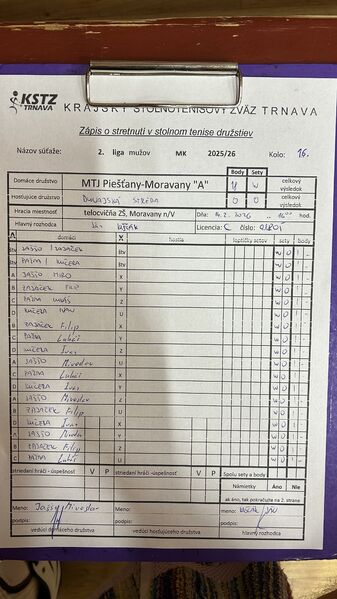 KSTZ
TRNAVA
KRAJSKÝ STOLNOTENISOVÝ ZVÄZ TRNAVA
Zápis o stretnutí v stolnom tenise družstiev
Názov súťaže: 2. liga mužov MK 2025/26 Kolo: 16.
Body Sety
Domáce družstvo MTJ Piešťany-Moravany "A" celkový výsledok
Hosťujúce družstvo DUNAJSKÁ STREDA 0 0 celkový výsledok
Hracia miestnosť telocvičňa ZŠ, Moravany n/V Dňa: hod.
Hlavný rozhodca Ján Licencia: C číslo:
A domáci X hostia loptičky setov sety body
štv JAŠŠO / ZAJAČEK štv W O
štv PAŽMA / KUČERA štv W O
A JAŠŠO MIRO X W O
B ZAJAČEK FILIP Y W O
C PAŽMA LUKÁŠ Z W O
D KUČERA IVAN U W O
B ZAJAČEK Filip X W O
C PAŽMA Lukáš Y W O
D KUČERA Ivan Z W O
A JAŠŠO Miroslav U W O
C PAŽMA Lukáš X W O
D KUČERA Ivan Y W O
A JAŠŠO Miroslav Z W O
B ZAJAČEK Filip U W O
D KUČERA Ivan X W O
A JAŠŠO Miroslav Y W O
B ZAJAČEK Filip Z W O
C PAŽMA Lukáš U W O
striedaní hráči - úspešnosť V P striedaní hráči - úspešnosť V P Spolu sety a body
Námietky Áno Nie
ak áno, tak pokračujte na 2. strane
Meno: Jaššo Miroslav Meno: meno:
podpis: podpis: podpis:
vedúci domáceho družstva vedúci hosťujúceho družstva hlavný rozhodca